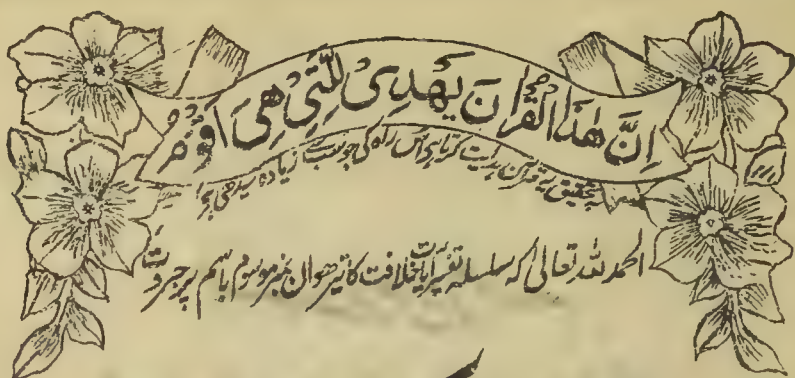 اِنَّ هٰذَا الْقُرْاٰنَ يَهْدِىْ لِلَّتِىْ هِىَ اَقْوَمُ
بہ تحقیق یہ قرآن ہدایت کرتا ہی اس راہ کی جو سب سے زیادہ سیدھی ہی
الحمد للہ تعالیٰ کہ سلسلہ تفسیر آیات خلافت کا تیرھوان نمبر موسوم باسم